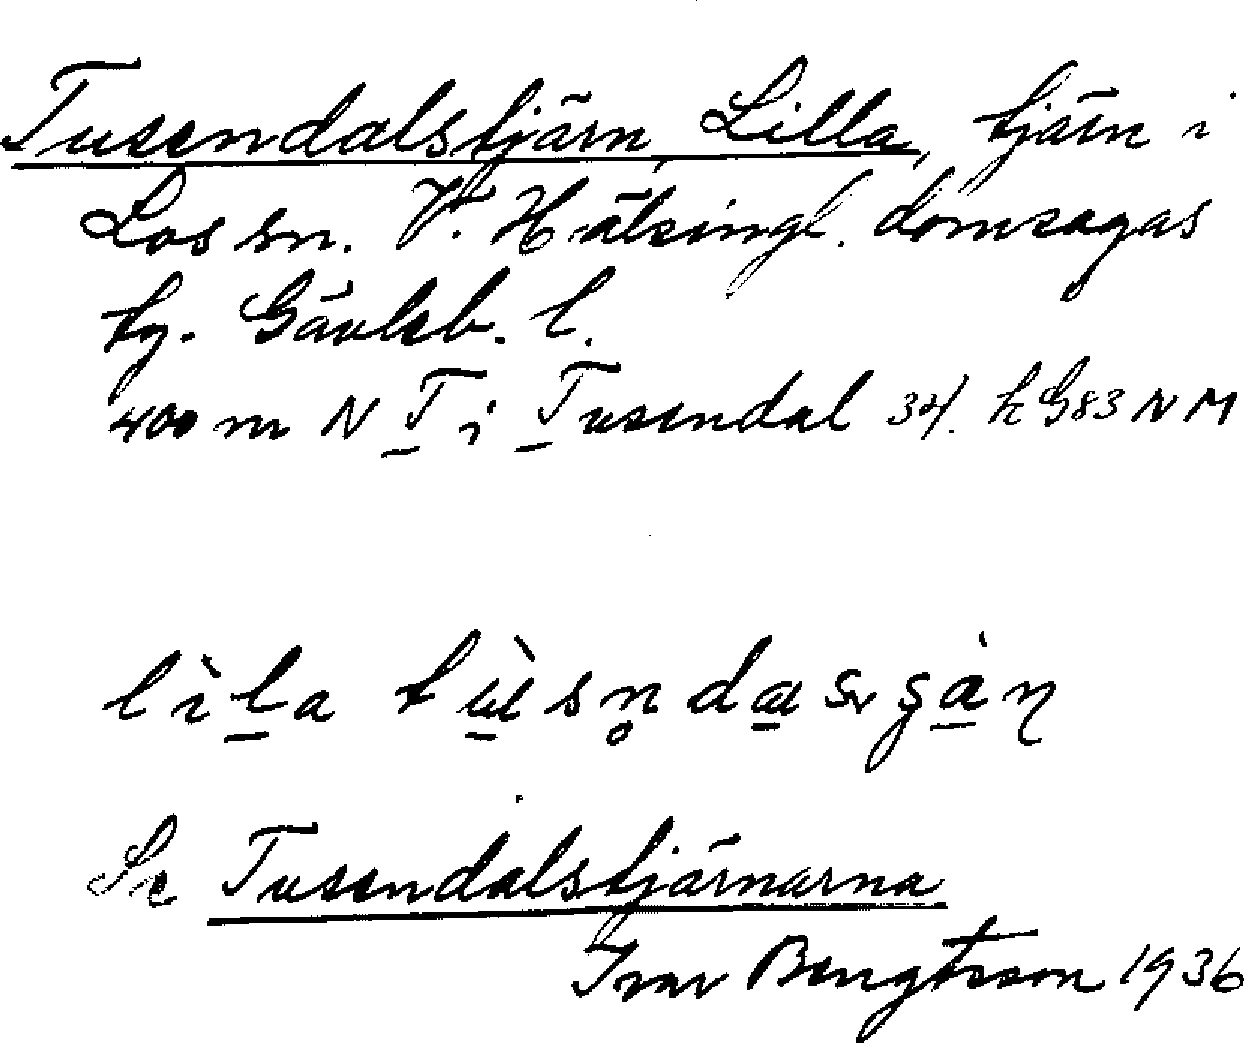 Tusendalstjärn, Lilla, tjärn i
Los sn. V. Hälsingl. domsagas
tg. Gävleb. l.
400 m N T i Tusendal 34. k G83 N M
lìla tùsn̥dasv
Se Tusendalstjärnarna
Ivar Bengtsson 1936